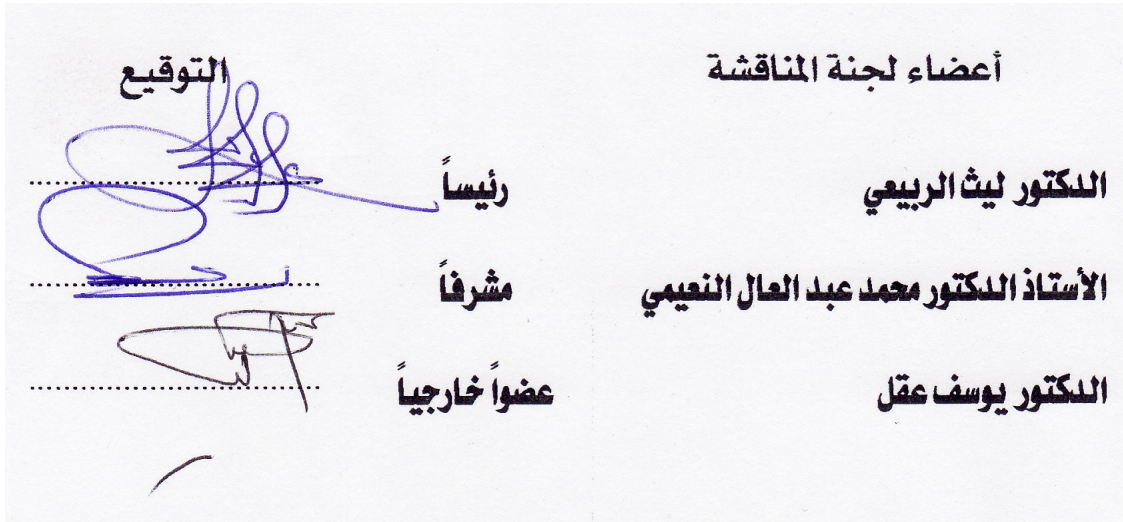 أعضاء لجنة المناقشة التوقيع
الدكتور ليث الربيعي رئيساً ..............................
الأستاذ الدكتور محمد عبد العال النعيمي مشرفاً ..............................
الدكتور يوسف عقل عضواً خارجياً ..............................